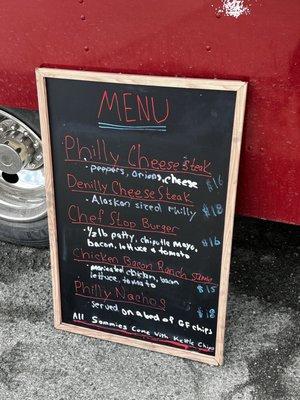 MENU
Philly Cheese steak
- peppers, onions, cheese $16
Denilly Cheese Steak
- Alaskan sized philly $18
Chef Stop Burger
- 1/2 lb patty, chipotle mayo, $16
bacon, lettuce & tomato
Chicken Bacon Ranch
- marinated chicken, bacon $15
lettuce, tomato
Philly Nachos
- served on a bed of GF chips $18
All Sammies Come with Kettle Chips